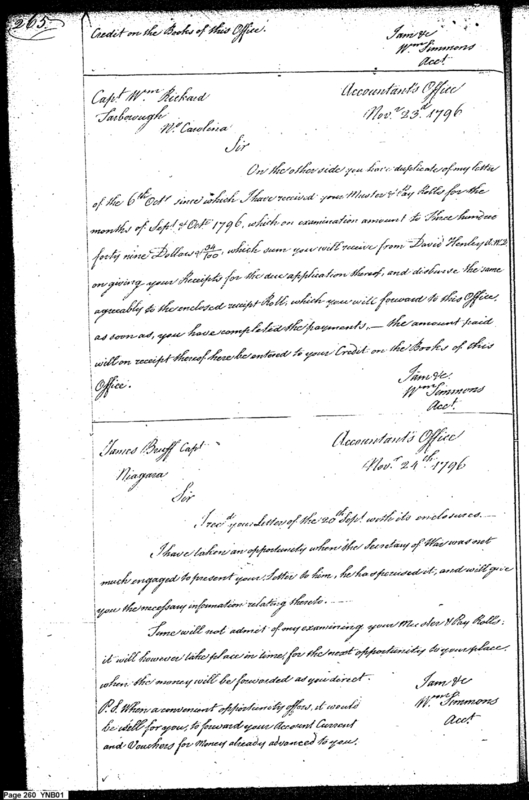 265.
Credit on the Books of this Office.
I am &c
Wm Simmons
Acct
Capt. Wm Rickard
Tarborough
No Carolina
Accountant's Office
Novr 23d 1796
Sir
On the other side you have duplicate of my letter
of the 6th Octr since which I have received your Muster & Pay Rolls for the
months of Sept & Octr 1796, which on examination amount to Five hundred
forty nine Dollars & 94/100, which sum you will receive from David Henley A.W.D.
on giving your Receipts for the due application thereof, and disburse the same
agreeably to the enclosed receipt Roll, which you will forward to this Office,
as soon as, you have completed the payments,— the amount paid
will on receipt thereof here be entered to your Credit on the Books of this
Office.
I am &c
Wm Simmons
Acct.
James Bruff Capt
Niagara
Accountant's Office
Novr 24th 1796
Sir
I recd your Letter of the 20th Sept. with its enclosures.—
I have taken an opportunity when the Secretary of War was not
much engaged to present your Letter to him, he has perused it, and will give
you the necessary information relating thereto.—
Time will not admit of my examining your Muster & Pay Rolls;
it will however take place in time, for the next opportunity to your place,
when the money will be forwarded as you direct.
P.S. When a convenient opportunity offers, it would
be well for you, to forward your Account Current
and Vouchers for Money already advanced to you.
I am &c
Wm Simmons
Acct
Page 260 YNB01